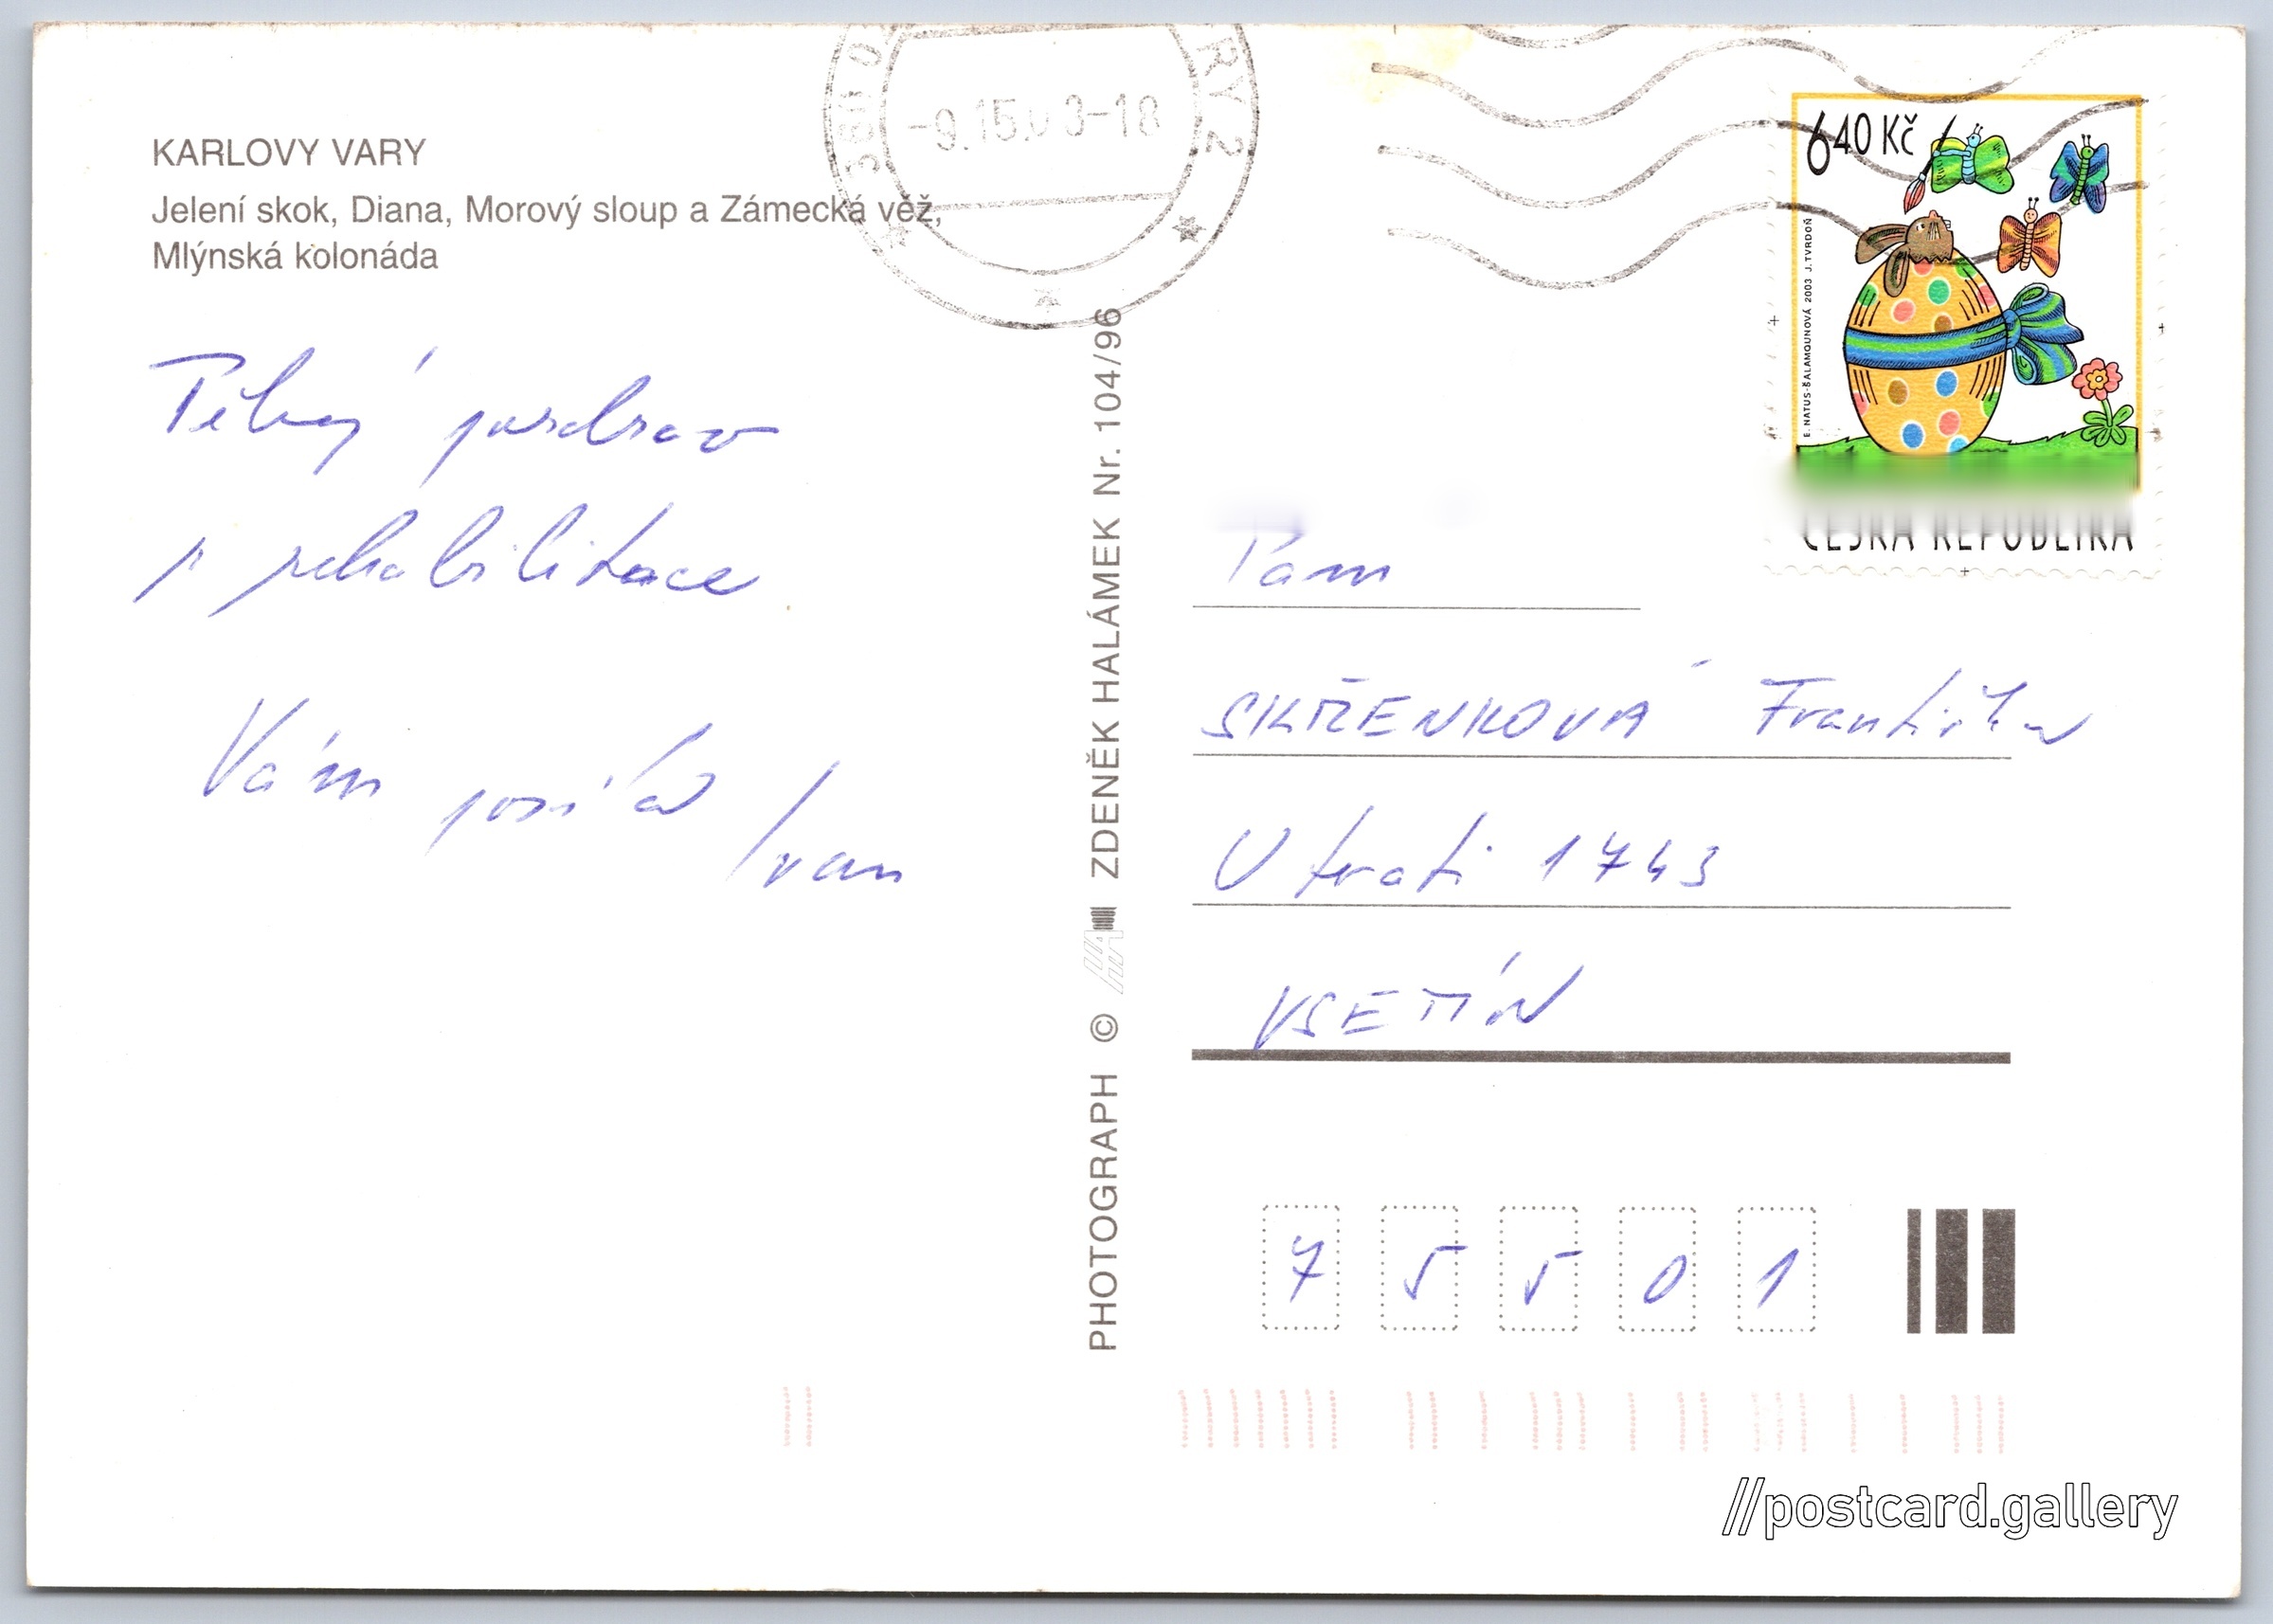 KARLOVY VARY
Jelení skok, Diana, Morový sloup a Zámecká věž,
Mlýnská kolonáda
Pěkný pozdrav
z rehabilitace
Vám posílá Ivan
PHOTOGRAPH © ZDENĚK HALÁMEK Nr. 104/96
RY 2
-9.15.0 3-18
640 Kč
E. NATUS-ŠALAMOUNOVÁ 2003 J. TVRDOŇ
ČESKÁ REPUBLIKA
Paní
SKŘENKOVÁ Františka
U trati 1743
VSETÍN
75501
//postcard.gallery